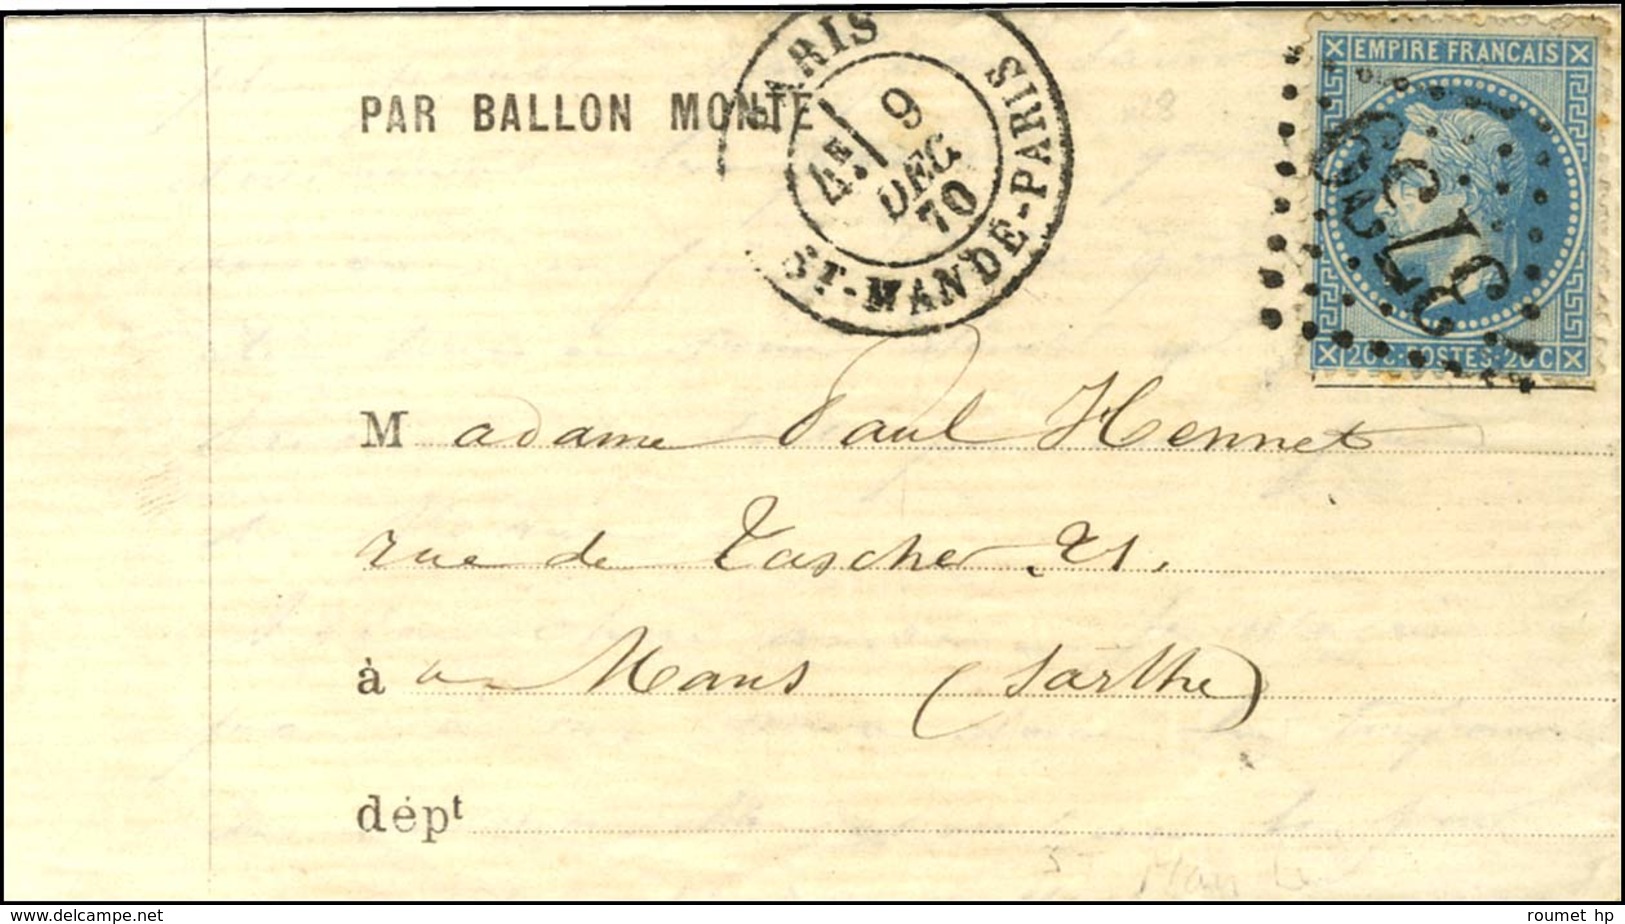 PARIS
ST-MANDÉ-PARIS
4E
9
DEC
70
PAR BALLON MONTÉ
428
EMPIRE FRANCAIS
3739
20 C. POSTES 20 C
Madame Paul Hennet
rue de Tascher 21.
à au Mans (Sarthe)
dépt
St Mandé
© www.delcampe.net
roumet hp